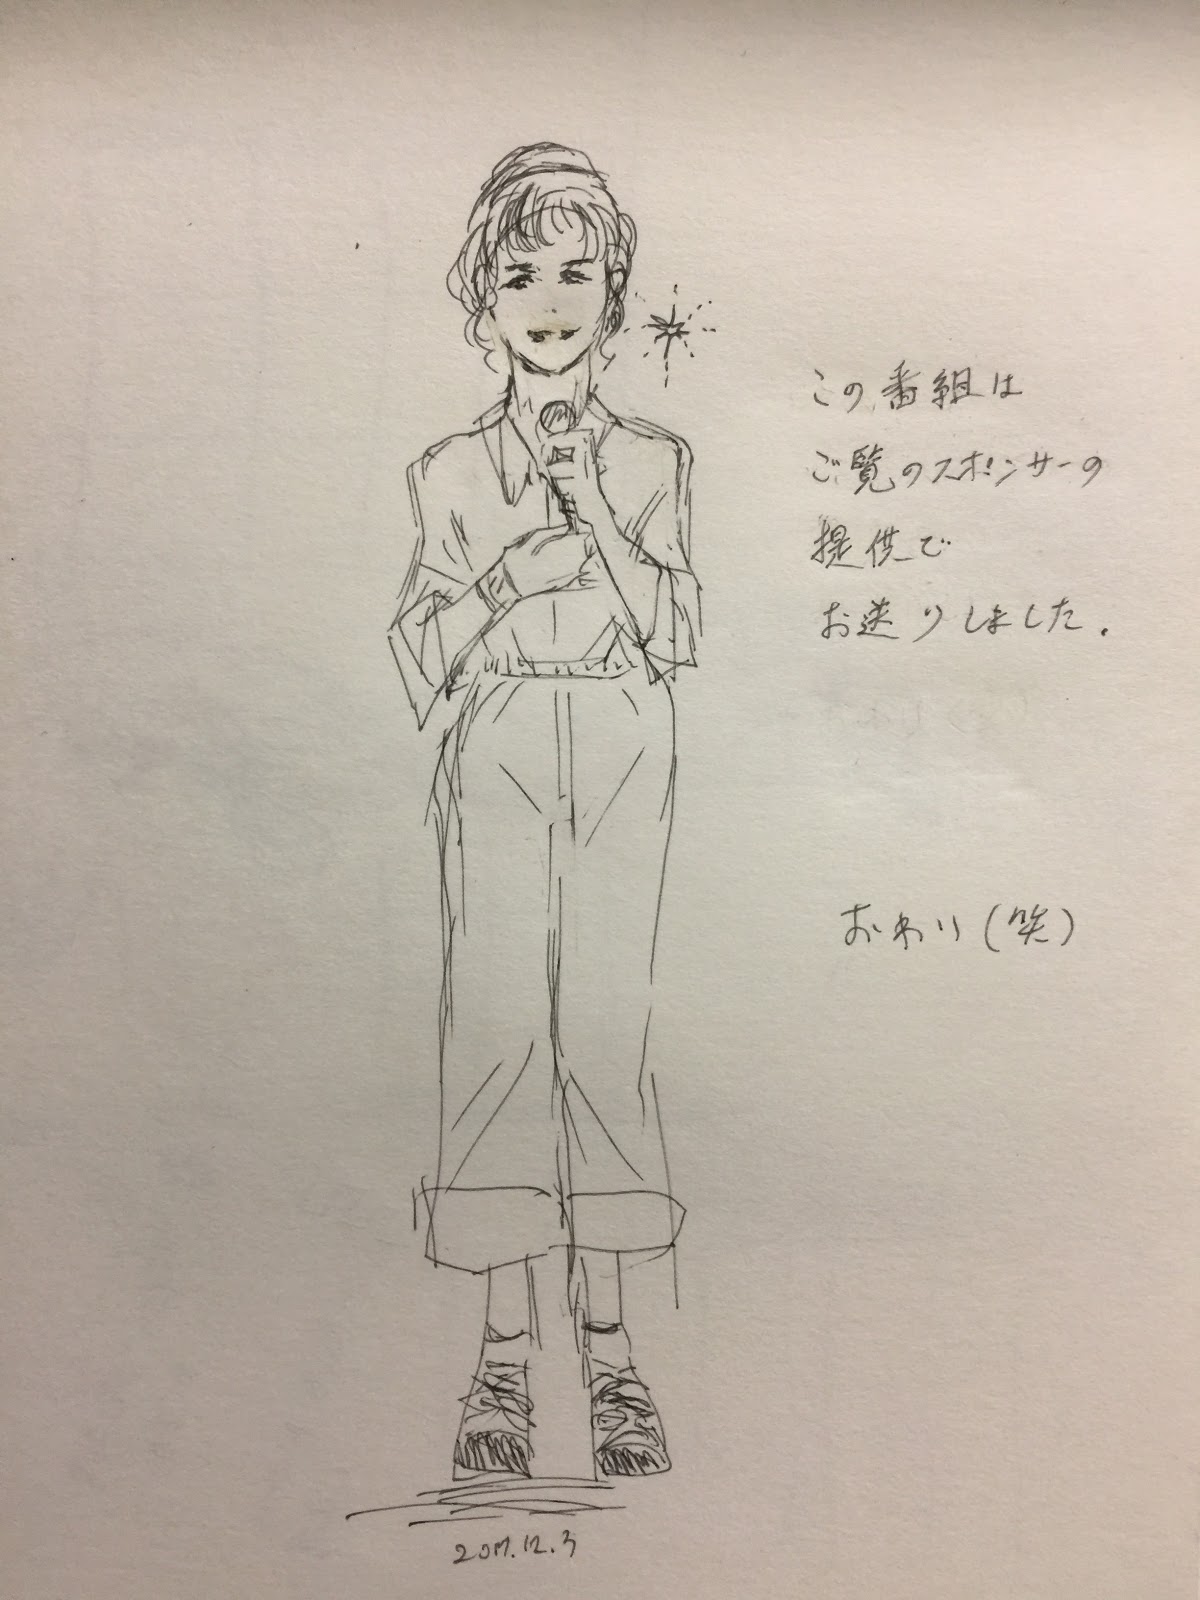 この番組は
ご覧のスポンサーの
提供で
お送りしました.
おわり(笑)
2017.12.3